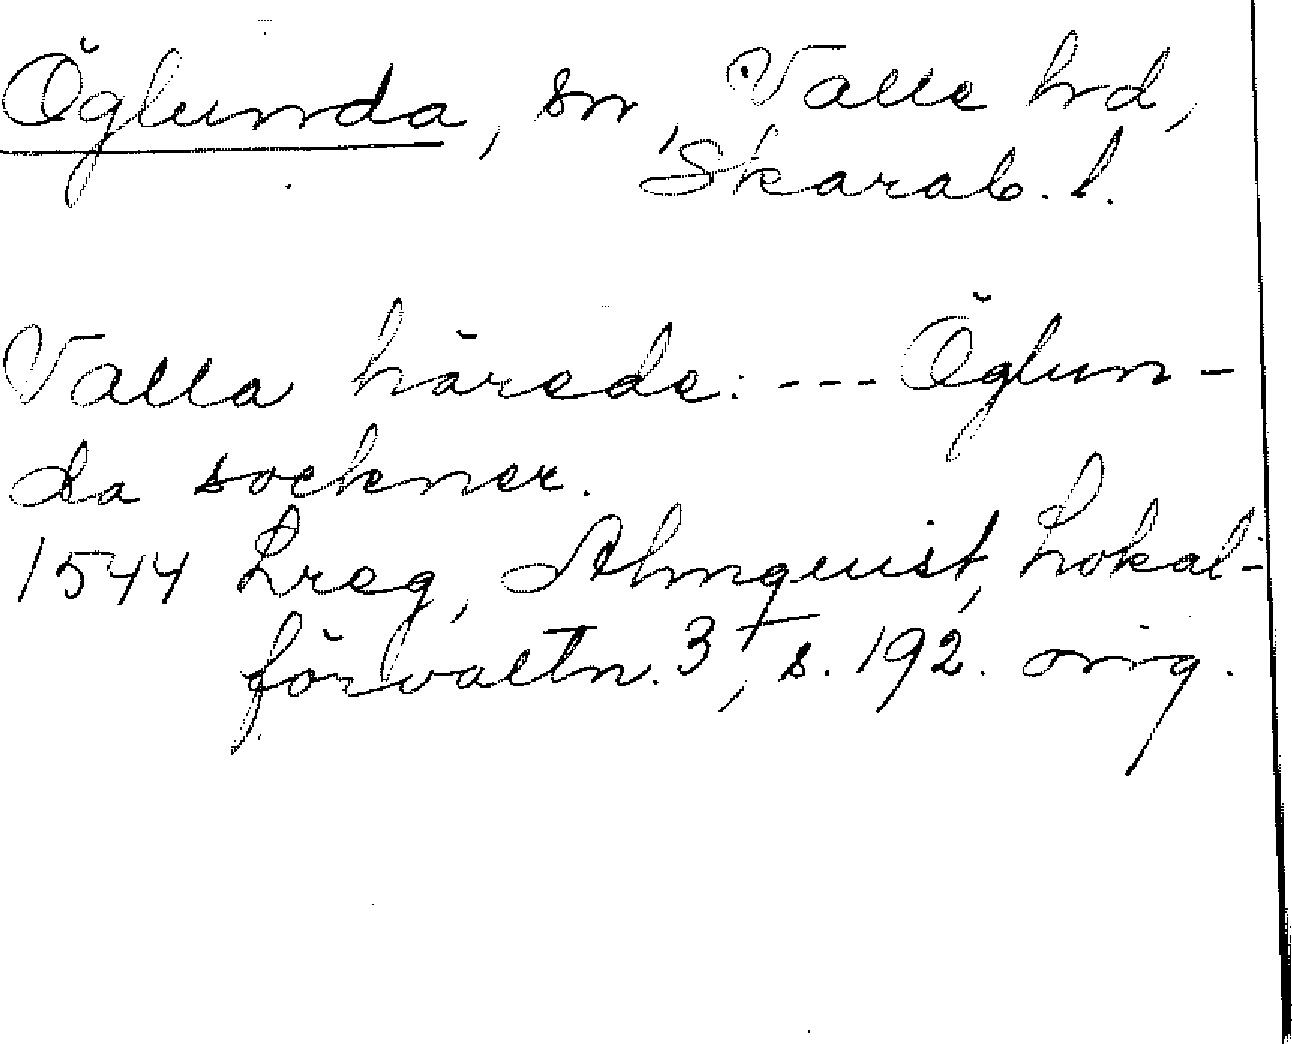 Öglunda, sn, Valle hrd,
Skarab. l.
Valla härede: --- Öglun-
da sockner.
1544 Lreg, Almquist, Lokal-
förvaltn. 3, s. 192. orig.